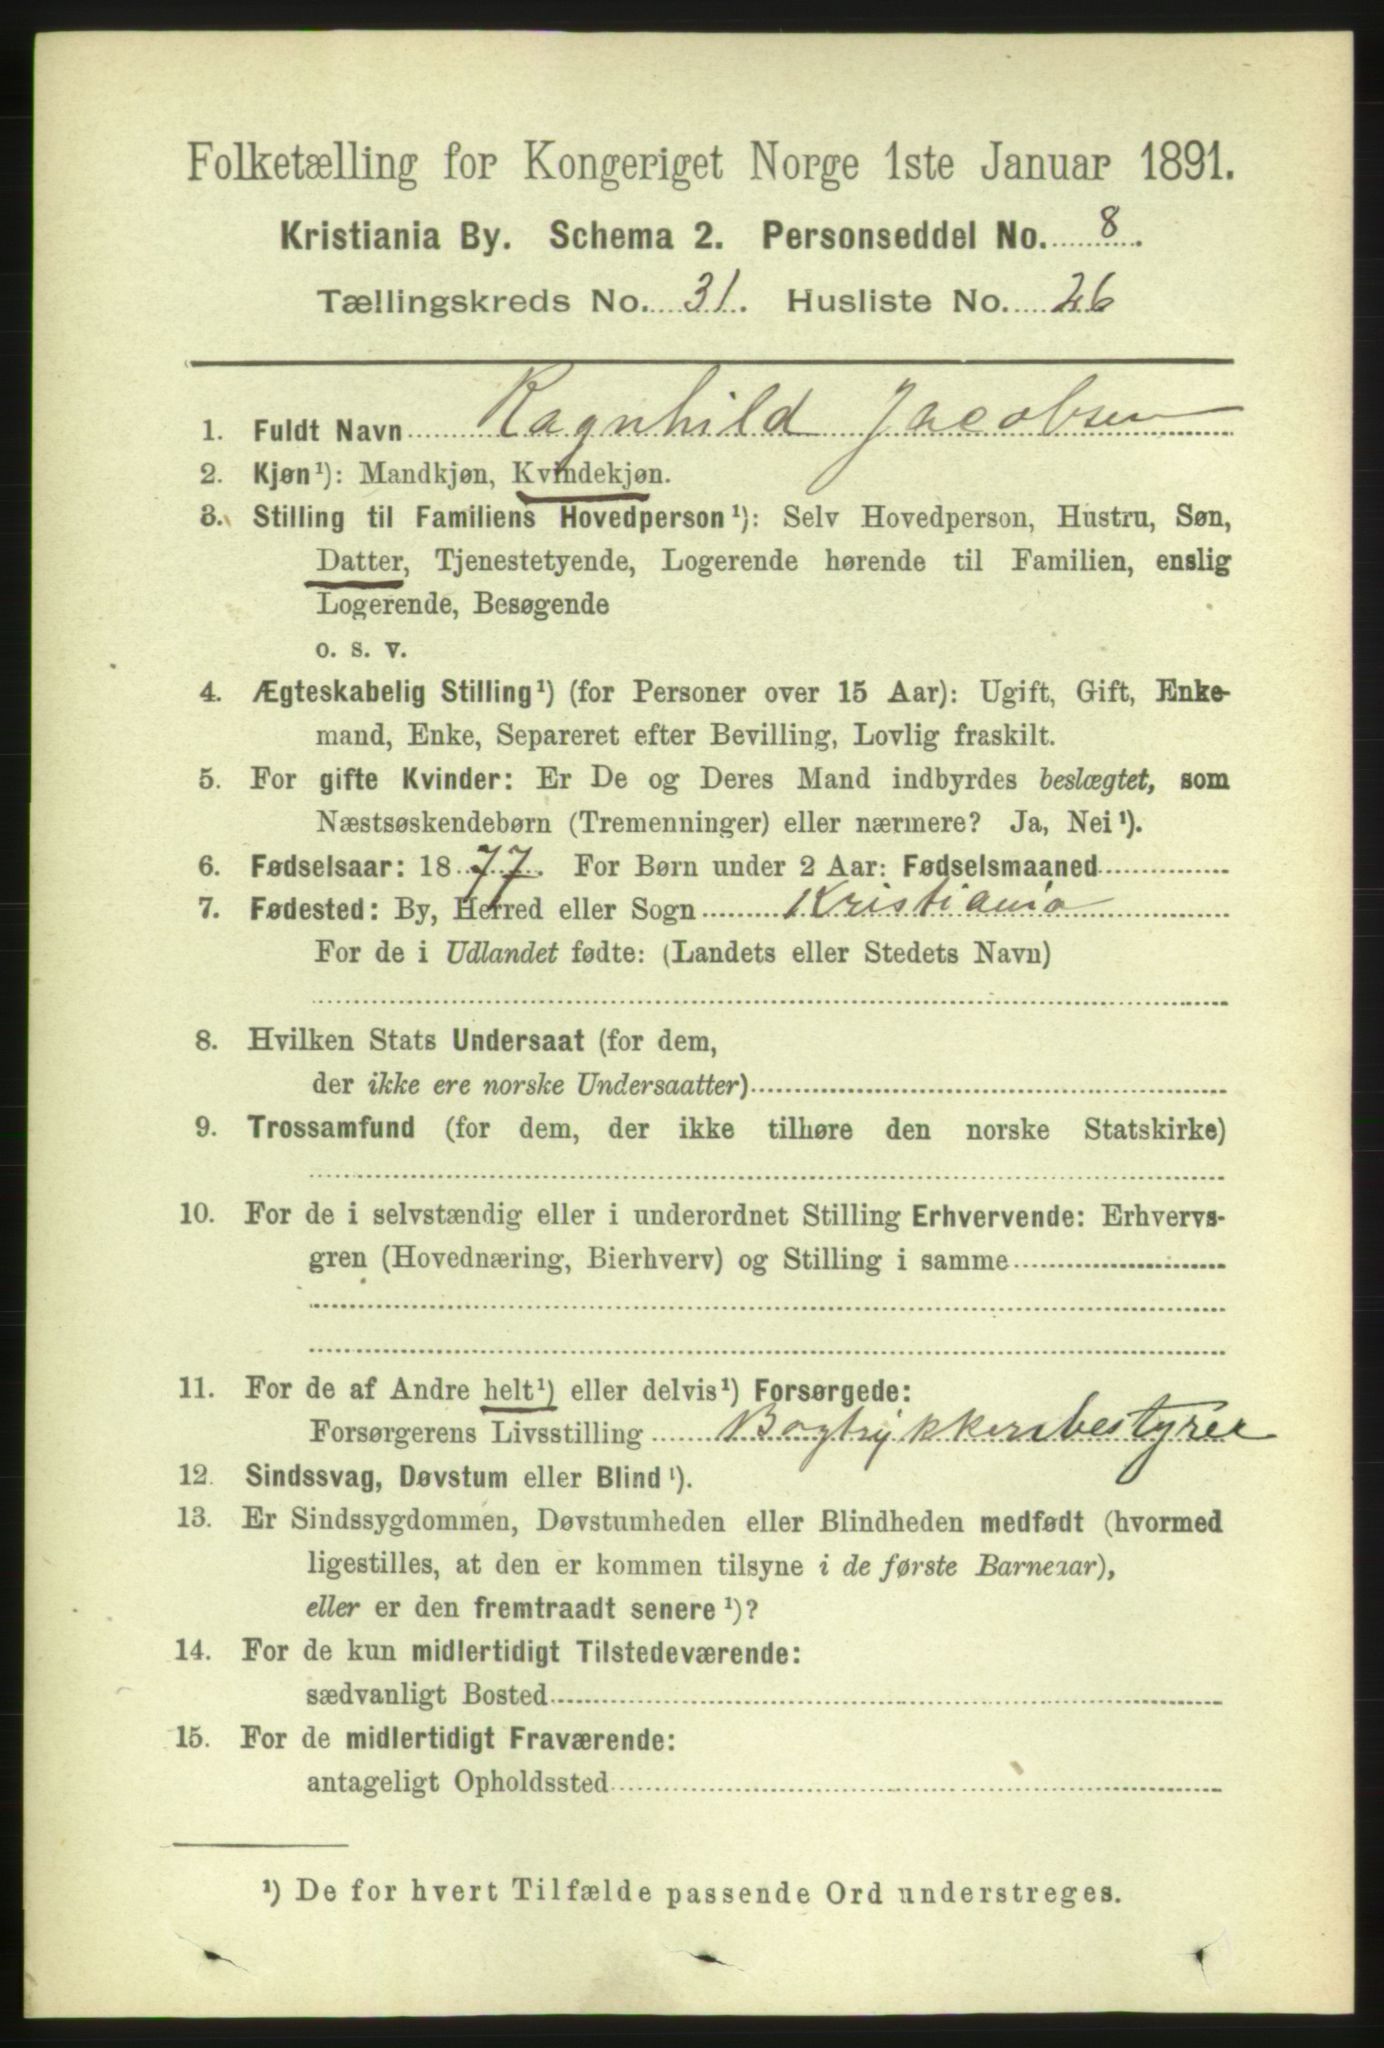 Folketælling for Kongeriget Norge 1ste Januar 1891.
Kristiania By. Schema 2. Personseddel No. 8.
Tællingskreds No. 31. Husliste No. 26
1. Fuldt Navn Ragnhild Jacobsen
2. Kjøn¹): Mandkjøn, Kvindekjøn.
3. Stilling til Familiens Hovedperson¹): Selv Hovedperson, Hustru, Søn,
Datter, Tjenestetyende, Logerende hørende til Familien, enslig
Logerende, Besøgende
o. s. v.
4. Ægteskabelig Stilling¹) (for Personer over 15 Aar): Ugift, Gift, Enke-
mand, Enke, Separeret efter Bevilling, Lovlig fraskilt.
5. For gifte Kvinder: Er De og Deres Mand indbyrdes beslægtet, som
Næstsøskendebørn (Tremenninger) eller nærmere? Ja, Nei¹).
6. Fødselsaar: 1877. For Børn under 2 Aar: Fødselsmaaned
7. Fødested: By, Herred eller Sogn Kristiania
For de i Udlandet fødte: (Landets eller Stedets Navn)
8. Hvilken Stats Undersaat (for dem,
der ikke ere norske Undersaatter)
9. Trossamfund (for dem, der ikke tilhøre den norske Statskirke)
10. For de i selvstændig eller i underordnet Stilling Erhvervende: Erhvervs-
gren (Hovednæring, Bierhverv) og Stilling i samme
11. For de af Andre helt¹) eller delvis¹) Forsørgede:
Forsørgerens Livsstilling Bogtrykkeribestyrer
12. Sindssvag, Døvstum eller Blind¹).
13. Er Sindssygdommen, Døvstumheden eller Blindheden medfødt (hvormed
ligestilles, at den er kommen tilsyne i de første Barneaar),
eller er den fremtraadt senere¹)?
14. For de kun midlertidigt Tilstedeværende:
sædvanligt Bosted
15. For de midlertidigt Fraværende:
antageligt Opholdssted
¹) De for hvert Tilfælde passende Ord understreges.